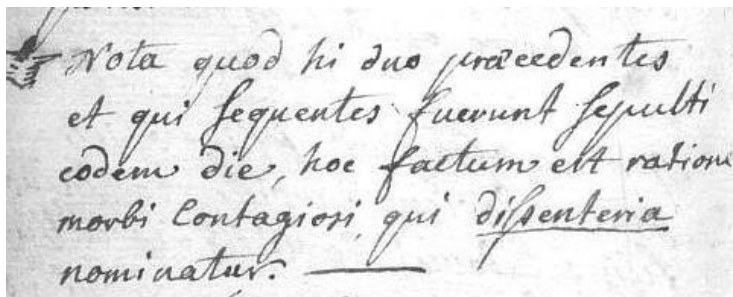 Nota quod hi duo præcedentes
et qui sequentes fuerunt sepulti
eodem die, hoc factum est ratione
morbi Contagiosi, qui dissenteria
nominatur.